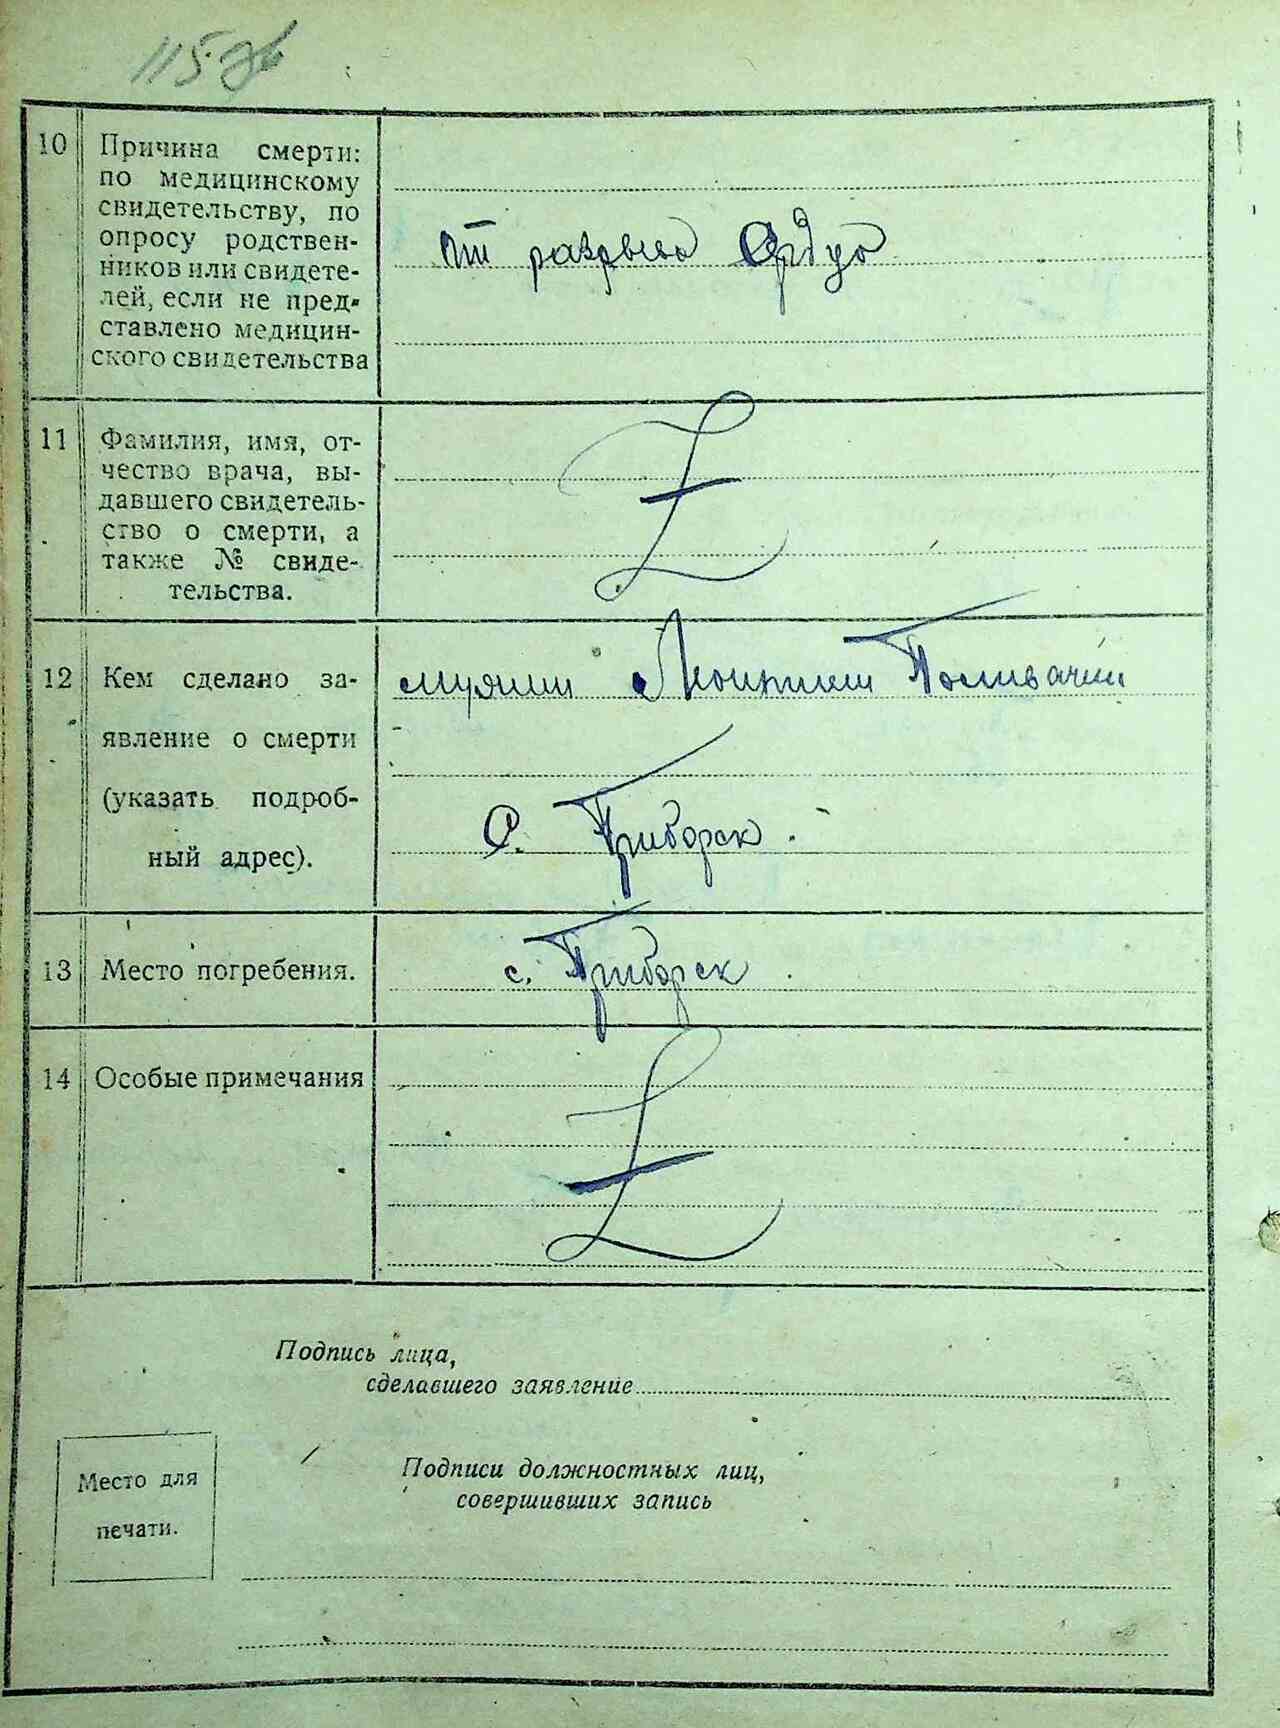 115 об
10 Причина смерти:
по медицинскому
свидетельству, по
опросу родствен-
ников или свидете-
лей, если не пред-
ставлено медицин-
ского свидетельства
от разрыва
11 Фамилия, имя, от-
чество врача, вы-
давшего свидетель-
ство о смерти, а
также № свиде-
тельства.
12 Кем сделано за-
явление о смерти
(указать подроб-
ный адрес).
С. Приборск.
13 Место погребения.
с. Приборск
14 Особые примечания
Подпись лица,
сделавшего заявление
Место для
печати.
Подписи должностных лиц,
совершивших запись